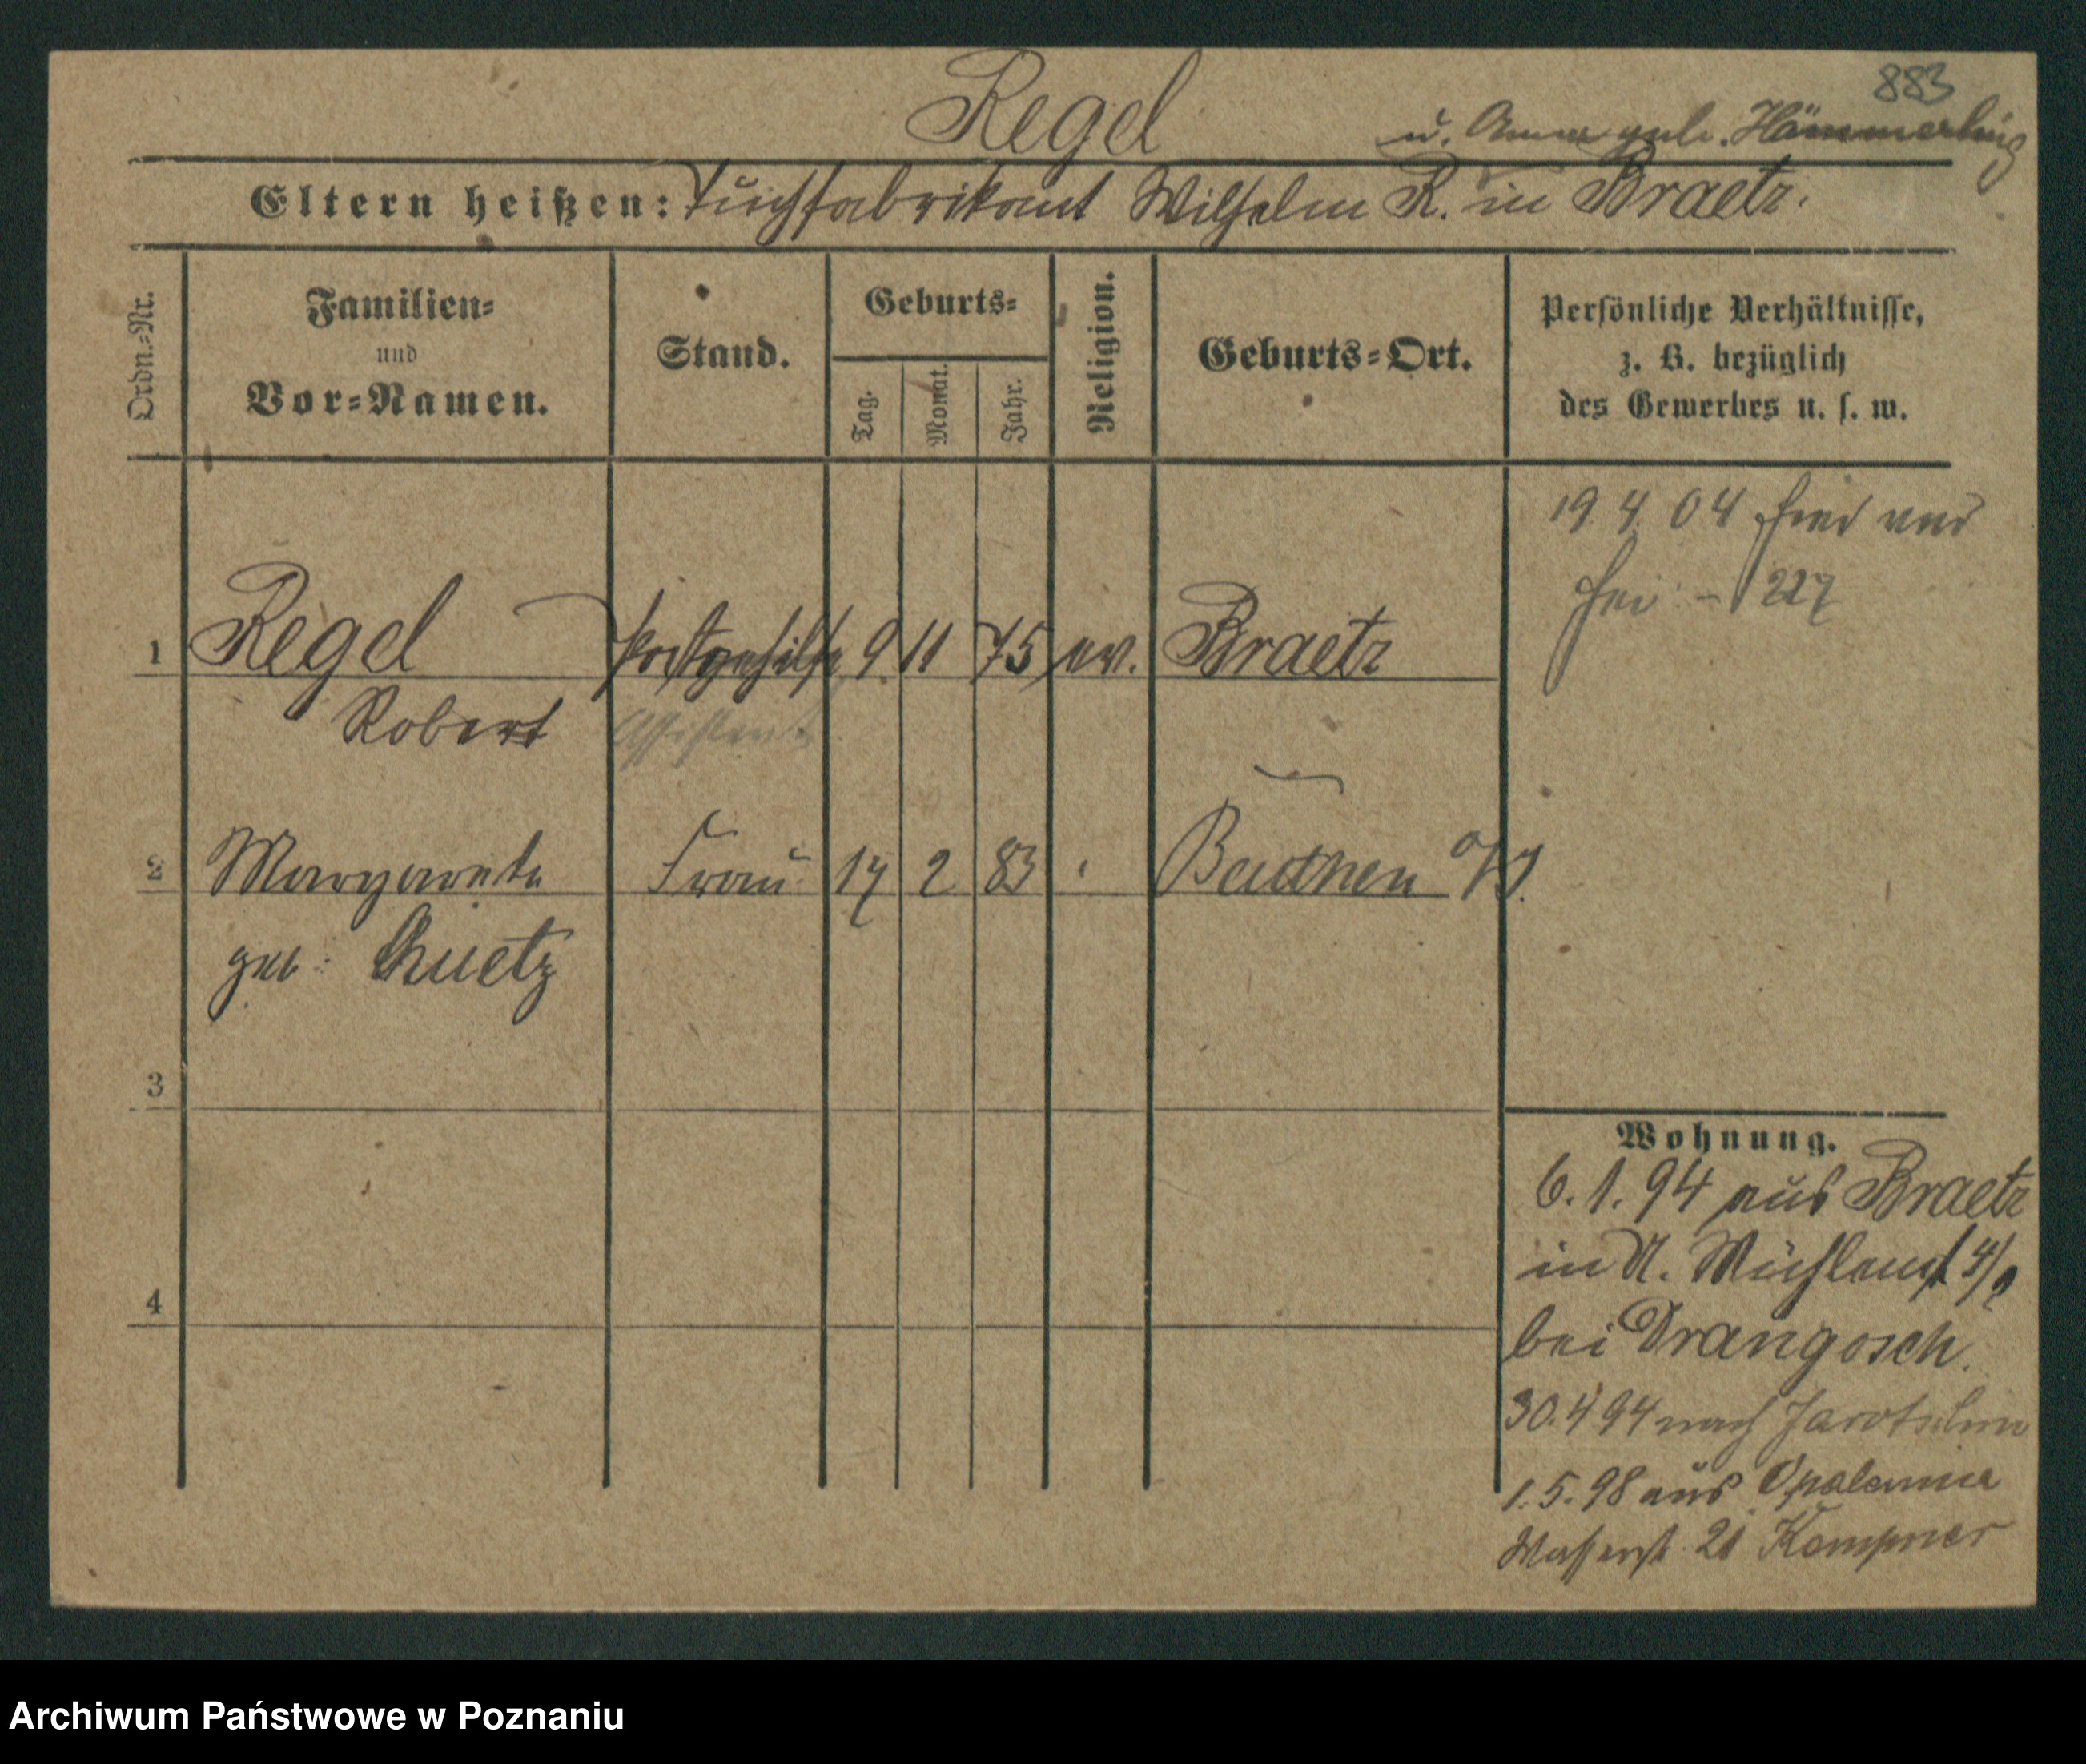 883
Regel
u. Anna geb. Hämmerling
Eltern heißen: Tuchfabrikant Wilhelm R. in Braetz.
Ordn.-Nr.
Familien- und Vor-Namen.
Stand.
Geburts-
Tag.
Monat.
Jahr.
Religion.
Geburts-Ort.
Persönliche Verhältnisse,
z. B. bezüglich
des Gewerbes u. s. w.
19. 4. 04
227
1 Regel Postgehilfe 9 11 75 ev. Braetz
Robert Assistent
2 Margarete Frau 17 2 83 Beuthen
geb: Quetz
3
4
Wohnung.
6. 1. 94 aus Braetz
in U. Mühlenst 4/
bei Drangosch.
30. 4 94 nach Jarotschin
1. 5. 98 aus Opalenica
Wasserst. 21 Kempner
Archiwum Państwowe w Poznaniu